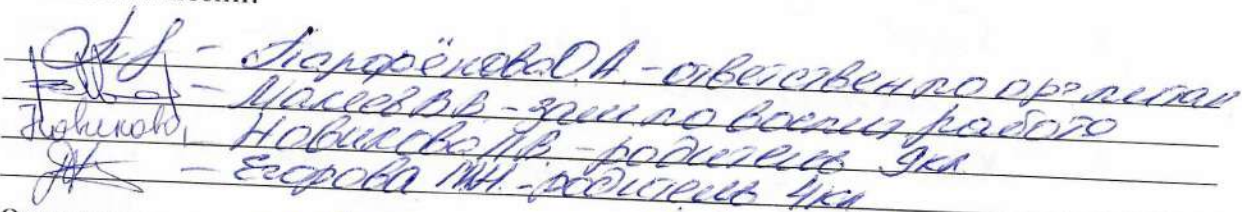 – Парфёнова О.А. – ответствен по орг питан
– Макеев В.В. – зам по воспит работо
Новикова, Новикова Л.В. – родитель 9кл
– Егорова М.Н. – родитель 4кл